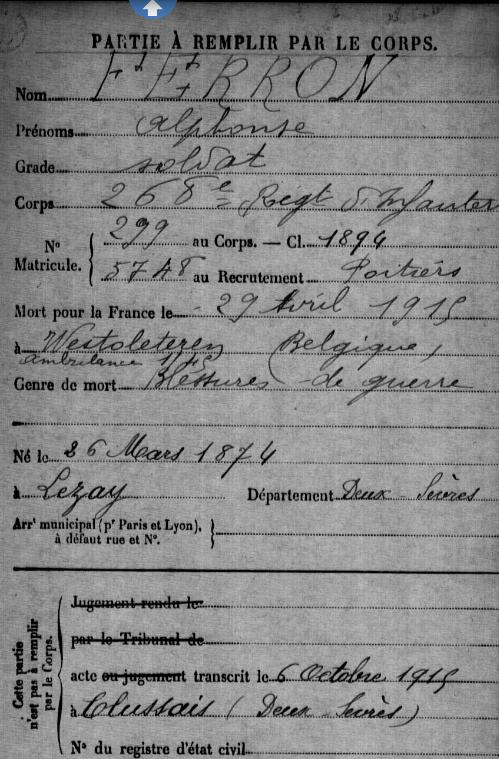 PARTIE À REMPLIR PAR LE CORPS.
Nom FERRON
Prénoms Alphonse
Grade soldat
Corps 268e Régt d'Infanter
N° Matricule. { 299 au Corps. — Cl. 1894
5748 au Recrutement Poitiers
Mort pour la France le 29 Avril 1915
à Westoleteren (Belgique)
ambulance
Genre de mort Blessures de guerre
Né le 26 Mars 1874
à Lezay Département Deux-Sèvres
Arrt municipal (pr Paris et Lyon), à défaut rue et N°.
Cette partie n'est pas à remplir par le Corps.
Jugement rendu le
par le Tribunal de
acte ou jugement transcrit le 6 Octobre 1915
à Clussais (Deux-Sèvres)
N° du registre d'état civil